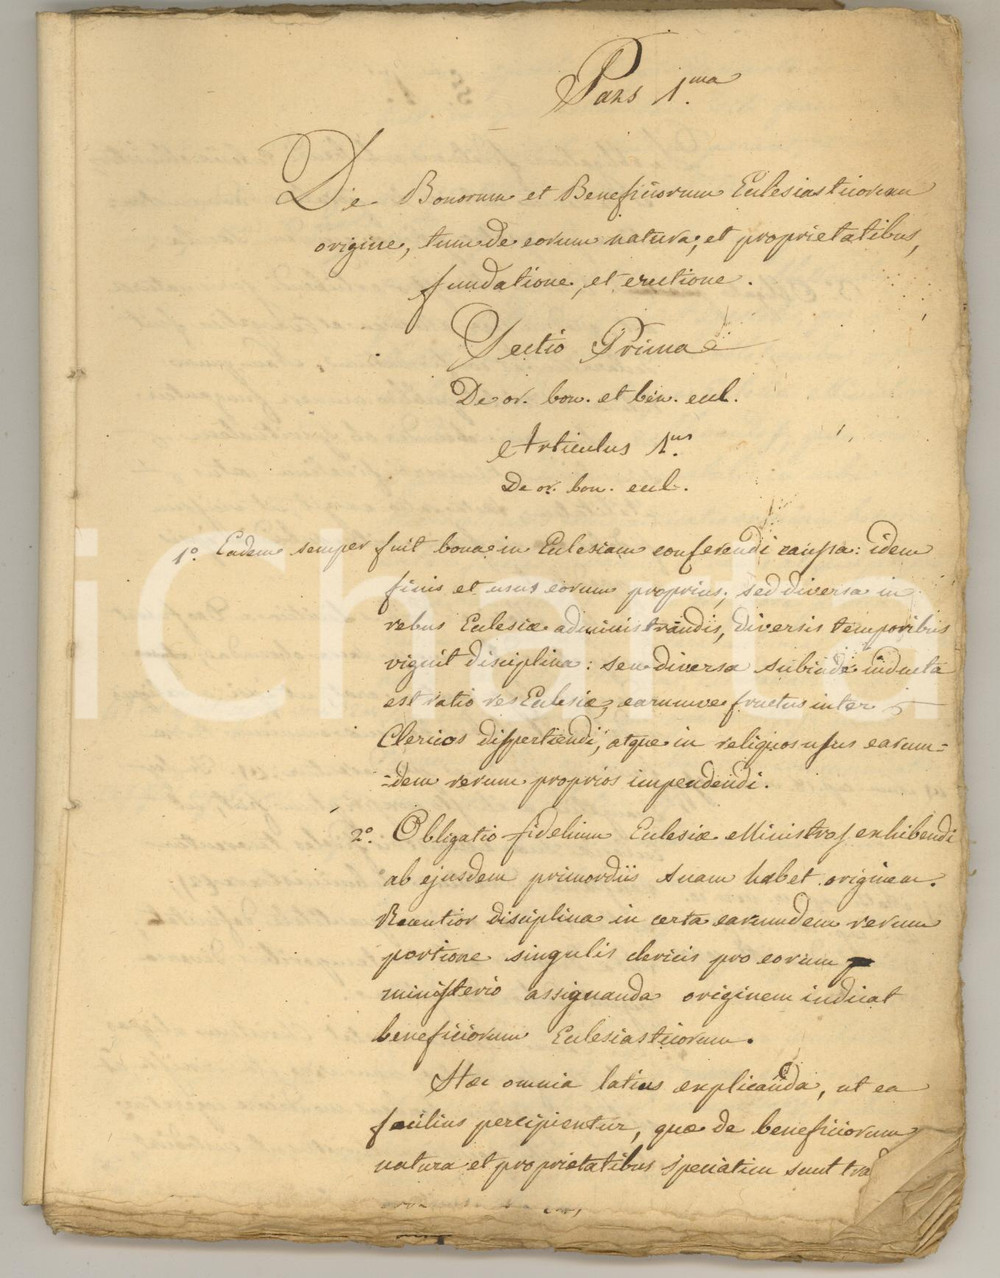 Pars 1.ma
De Bonorum et Beneficiorum Ecclesiasticorum
origine, tum de eorum natura, et proprietatibus,
fundatione, et erectione.
Sectio Prima
De or. bon. et ben. eccl.
Articulus 1.us
De or. bon. eccl.
1.° Eadem semper fuit bona in Ecclesiam conferendi caussa: idem
finis et usus eorum proprius; sed diversa in
rebus Ecclesiæ administrandis, diversis temporibus
viguit disciplina: seu diversa subinde inducta
est ratio res Ecclesiæ, earumve fructus inter
Clericos dispertiendi, atque in reliquos usus earum-
-dem rerum proprios impendendi.
2.° Obligatio fidelium Ecclesiæ Ministros exhibendi
ab ejusdem primordiis suam habet originem.
Recentior disciplina in certa earumdem rerum
portione singulis clericis pro eorum
ministerio assignanda originem indicat
beneficiorum Ecclesiasticorum.
Hæc omnia latius explicanda, ut ea
facilius percipientur, quæ de beneficiorum
natura et proprietatibus speciatim sunt tra
iCharta